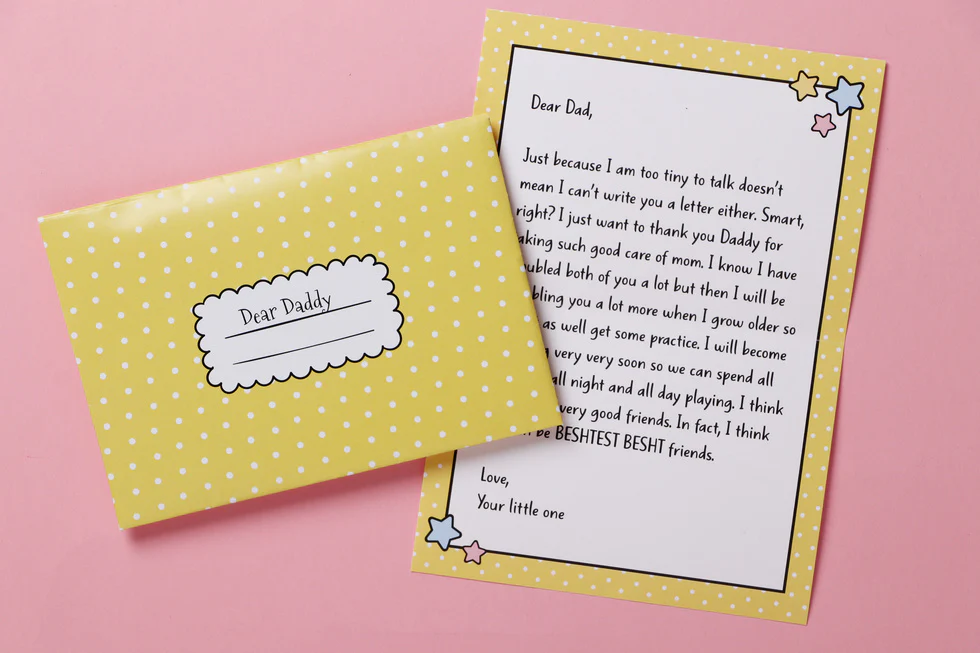 Dear Daddy
Dear Dad,
Just because I am too tiny to talk doesn't
mean I can't write you a letter either. Smart,
right? I just want to thank you Daddy for
aking such good care of mom. I know I have
ubled both of you a lot but then I will be
bling you a lot more when I grow older so
as well get some practice. I will become
very very soon so we can spend all
all night and all day playing. I think
very good friends. In fact, I think
be BESHTEST BESHT friends.
Love,
Your little one